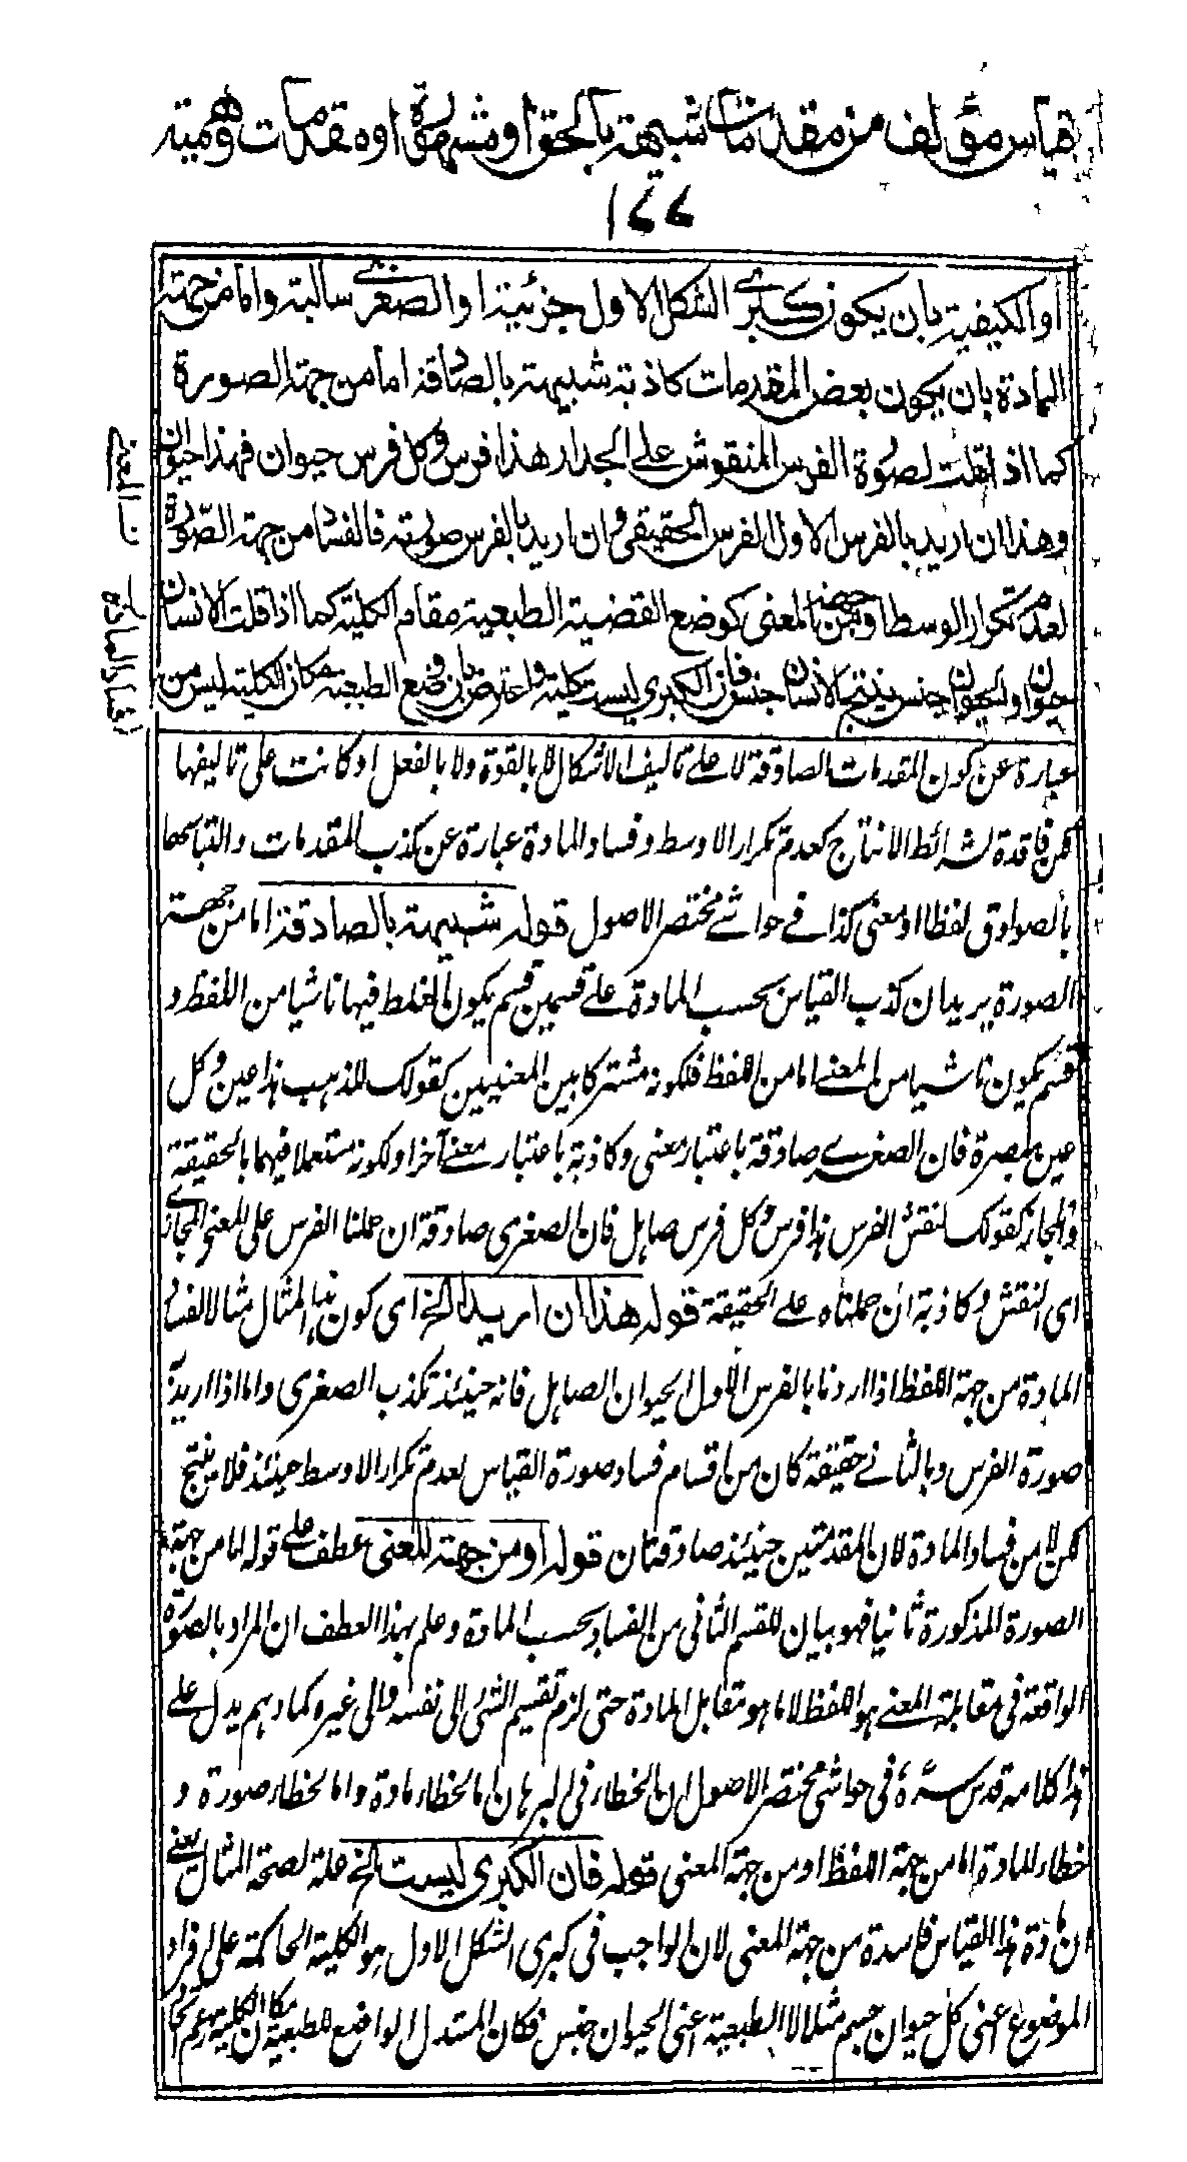 قياس مؤلف من مقدمات شبيهة بالحق او مشهورة او مقدمات وهمية
١٧٧
او الكيفية بان يكون كبرى الشكل الاول جزئية او الصغرى سالبة واما من جهة
المادة بان يكون بعض المقدمات كاذبة شبيهة بالصادقة اما من جهة الصورة
كما اذا قلت لصورة الفرس المنقوش على الجدار هذا فرس وكل فرس حيوان فهذا حيوان
وهذا ان اريد بالفرس الاول الفرس الحقيقي وان اريد بالفرس صورته فالفساد من جهة الصورة
لعدم تكرار الوسط او من جهة المعنى كوضع القضية الطبعية مقام الكلية كما اذا قلت الانسان
حيوان والحيوان جنس ينتج الانسان جنس فان الكبرى ليست كلية واعترض بان وضع الطبعية مكان الكلية ليس من
عبارة عن كون المقدمات الصادقة لا على تاليف الاشكال لا بالقوة ولا بالفعل او كانت على تاليفها
لكن فاقدة لشرائط الانتاج كعدم تكرار الاوسط وفساد المادة عبارة عن كذب المقدمات والتباسها
بالصوادق لفظا او معنى كذا في حواشي مختصر الاصول قوله شبيهة بالصادقة اما من جهة
الصورة يريد ان كذب القياس بحسب المادة على قسمين قسم يكون الغلط فيها ناشيا من اللفظ و
قسم يكون ناشيا من المعنى اما من اللفظ فلكونه مشتركا بين المعنيين كقولك للذهب هذا عين وكل
عين مبصرة فان الصغرى صادقة باعتبار معنى وكاذبة باعتبار معنى آخر او لكونه مستعملا فيهما بالحقيقة
والمجاز كقولك لنقش الفرس هذا فرس وكل فرس صاهل فان الصغرى صادقة ان حملنا الفرس على المعنى المجازي
اى النقش وكاذبة ان حملناه على الحقيقة قوله هذا ان اريد الخ اى كون هذا المثال مثالا لفساد
المادة من جهة اللفظ اذا اردنا بالفرس الاول الحيوان الصاهل فانه حينئذ تكذب الصغرى واما اذا اريد به
صورة الفرس وبالثاني حقيقة كان من اقسام فساد صورة القياس لعدم تكرار الاوسط حينئذ فلا ينتج
لكن لا من فساد المادة لان المقدمتين حينئذ صادقتان قوله او من جهة المعنى عطف على قوله اما من جهة
الصورة المذكورة ثانيا فهو بيان للقسم الثاني من الفساد بحسب المادة وعلم بهذا العطف ان المراد بالصورة
الواقعة في مقابلة المعنى هو اللفظ لا ما هو مقابل المادة حتى لزم تقسيم الشئ الى نفسه والى غيره كما وهم يدل على
هذا كلامه قدس سره في حواشي مختصر الاصول ان الخطاء في البرهان اما لخطاء مادة واما لخطاء صورة و
خطاء المادة اما من جهة اللفظ او من جهة المعنى قوله فان الكبرى ليست الخ علة لصحة المثال يعنى
ان مادة هذا القياس فاسدة من جهة المعنى لان الواجب في كبرى الشكل الاول هو الكلية الحاكمة على افراد
الموضوع اعنى كل حيوان جسم مثلا لا الطبعية اعنى الحيوان جنس فكان المستدل الواضع للطبعية مكان الكلية